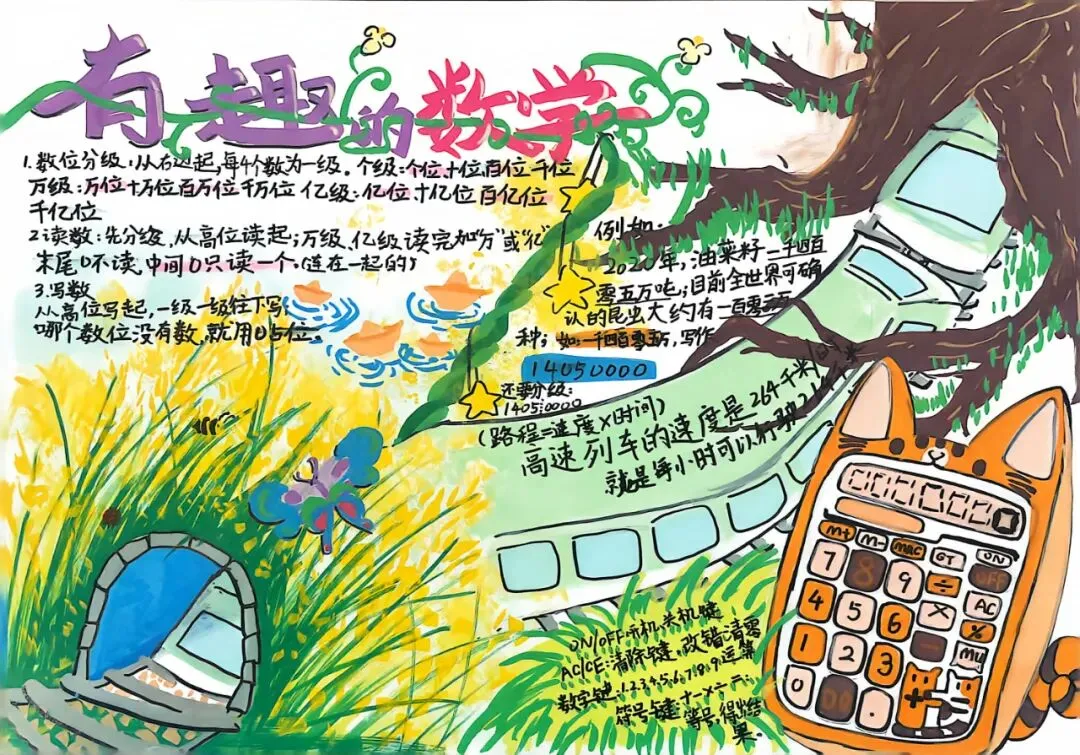 有趣的数学
1.数位分级:从右边起,每4个数为一级。个级:个位十位百位千位
万级:万位十万位百万位千万位 亿级:亿位、十亿位百亿位
千亿位
2.读数:先分级、从高位读起;万级、亿级读完加"万"或"亿"
末尾0不读,中间0只读一个.(连在一起的)
3.写数
从高位写起,一级一级往下写;
哪个数位没有数,就用0占位。
例如:
2020年,油菜籽一千四百
零五万吨;目前全世界可确
认的昆虫大约有一百零五万
种;如:一千四百零五万,写作
14050000
还要分级:
1405:0000
(路程=速度×时间)
高速列车的速度是264千米/
就是每小时可以行驶
ON/OFF:开机、关机键
AC/CE:清除键、改错、清零
数字键:1.2.3.4.5.6.7.8.9.运算
符号键:+-×÷=
等号,得出结
果。
M+ M- MRC GT ON
7 8 9 ÷ OFF
4 5 6 × AC
1 2 3 %
MU
0 00 .